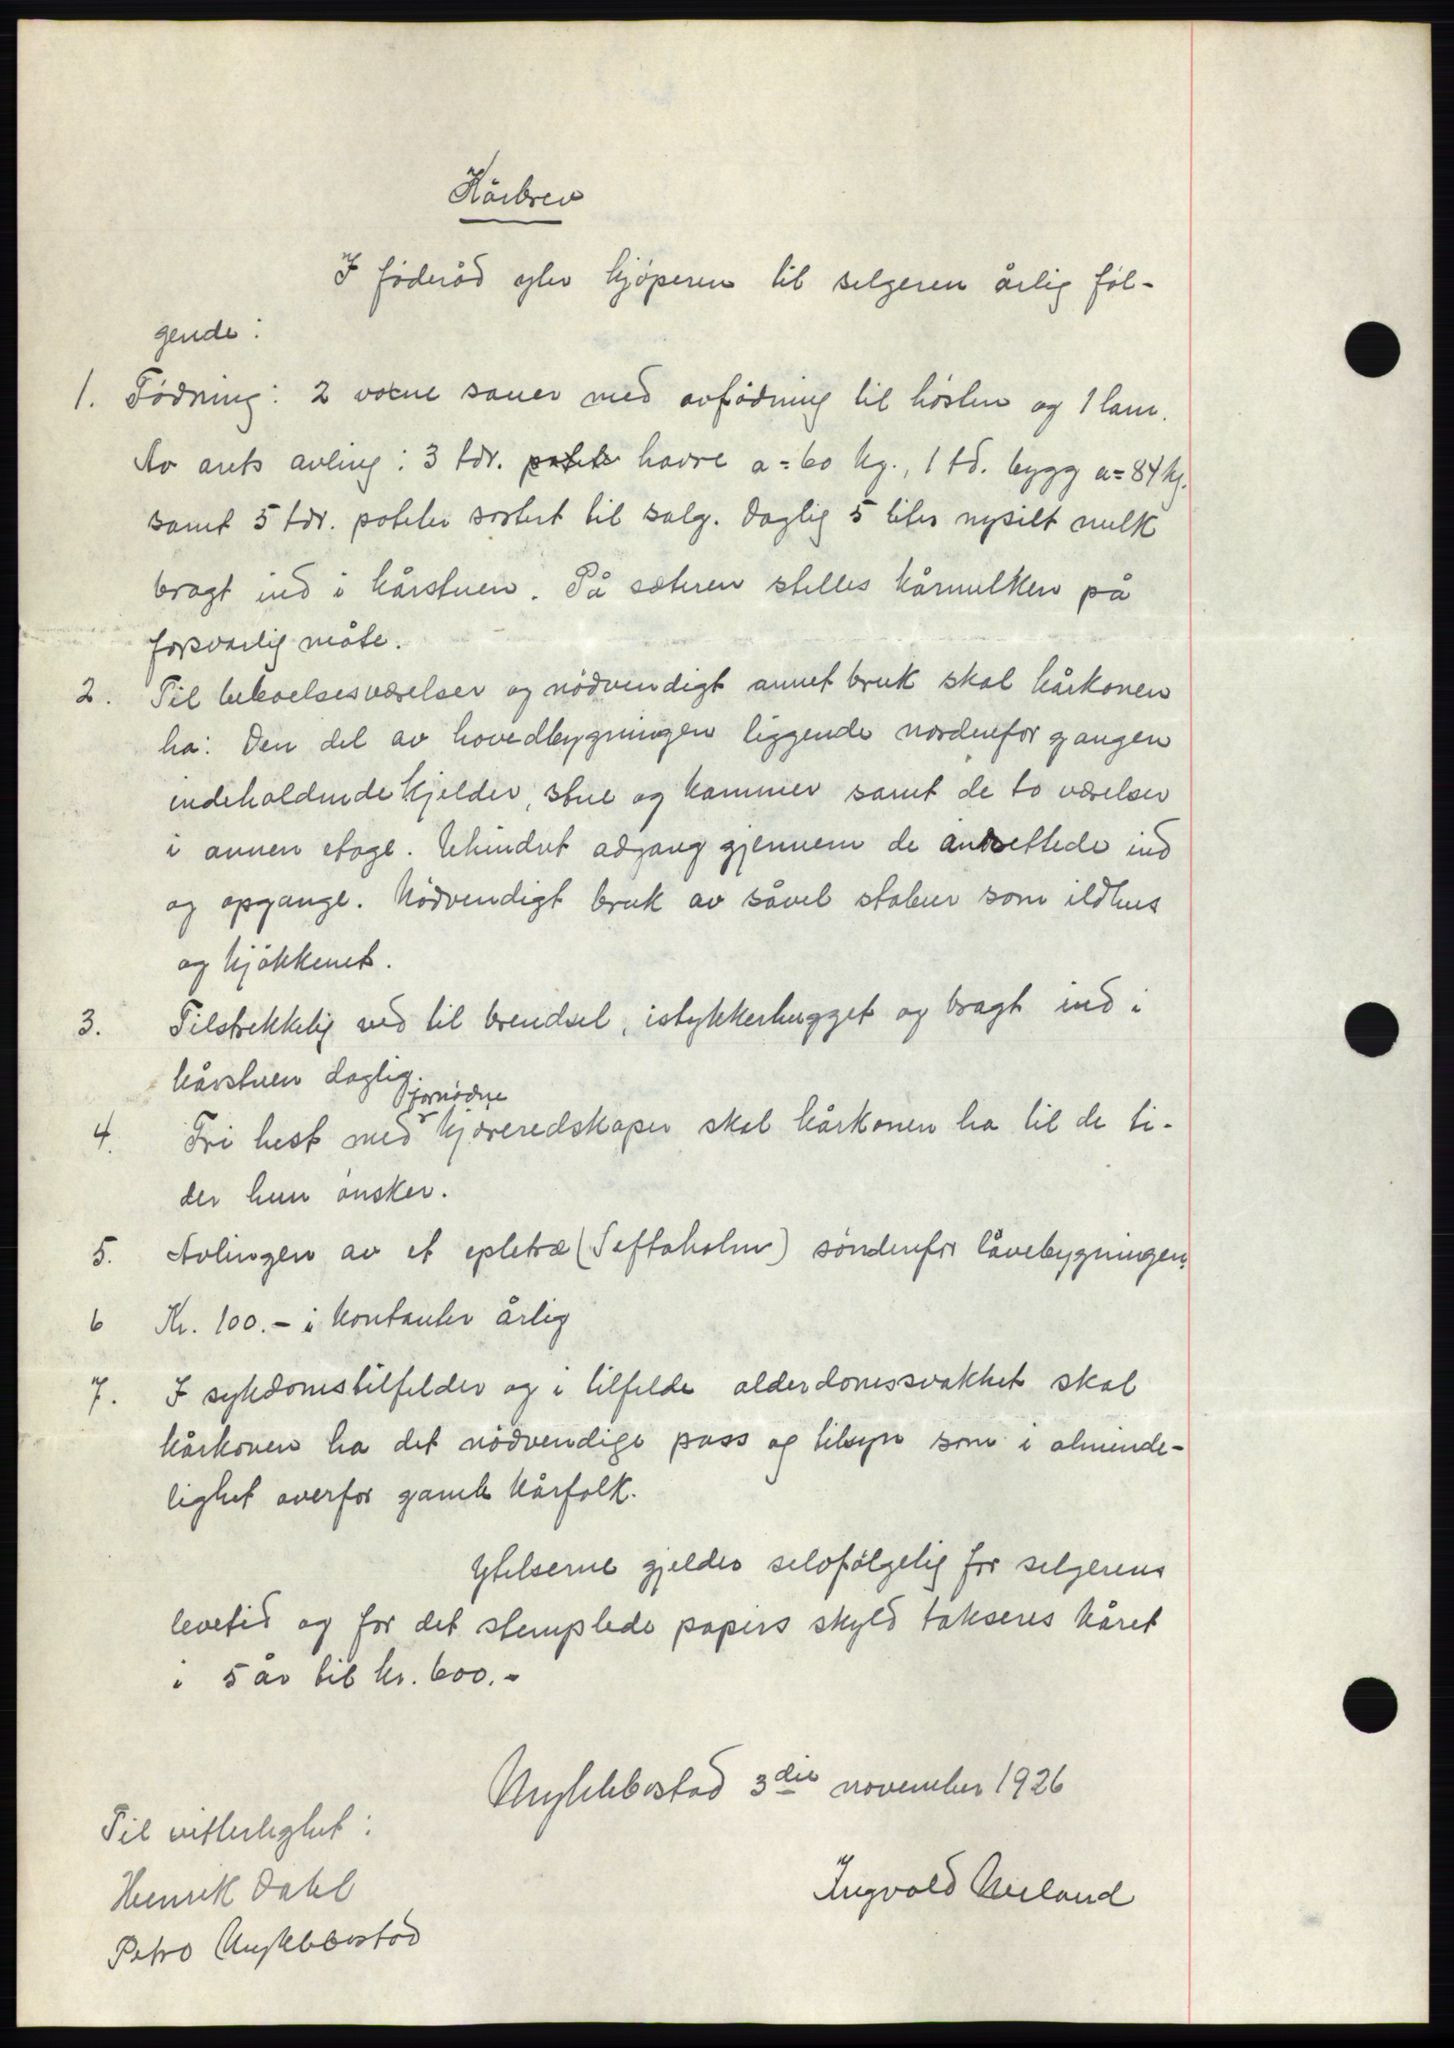 Kårbrev
I føderåd yter kjøperen til selgeren årlig føl-
gende:
1. Fødning: 2 voxne sauer med avfødning til høsten og 1 lam.
Av arets avling: 3 tdr. potet havre a = 60 kg., 1 td. bygg a = 84 kg.
samt 5 tdr. poteter sortert til salg. Daglig 5 liter nysilt mulk
bragt ind i kårstuen. På sæteren stelles kårmulken på
forsvarlig måte.
2. Til beboelsesværelser og nødvendigt annet bruk skal kårkonen
ha: Den del av hovedbygningen liggende nordenfor gangen
indeholdende kjelder, stue og kammer samt de to værelser
i annen etage. Uhindret adgang gjennem de ind
og opgange. Nødvendigt bruk av såvel stabur som ildhus
og kjøkkenet.
3. Tilstrekkelig ved til brendsel, istykkerhugget og bragt ind i
kårstuen daglig.
fornødne
4. Fri hest med kjøreredskaper skal kårkonen ha til de ti-
der hun ønsker.
5. Avlingen av et epletræ (Seftaholm) søndenfor låvebygningen.
6 Kr. 100.- i kontanter årlig
7. I sykdomstilfelder og i tilfelde alderdomssvakhet skal
kårkonen ha det nødvendige pass og tilsyn som i alminde-
lighet overfor gamle kårfolk.
Ytelserne gjelder selvfølgelig for selgerens
levetid og for det stemplede papirs skyld takseres kåret
i 5 år til kr. 600.-
Myklebostad 3die november 1926
Til vitterlighet:
Henrik Dahl
Ingvald Neeland
Petro Myklebostad